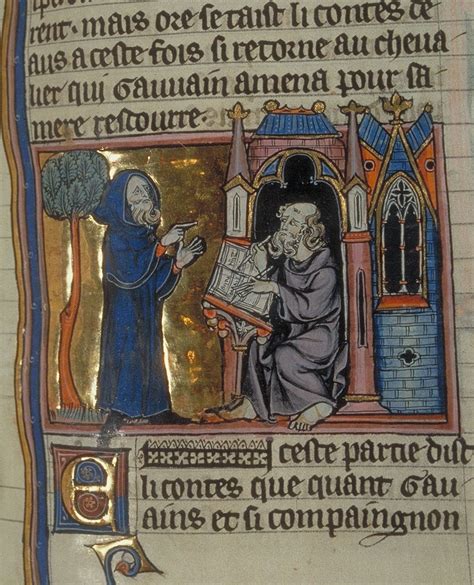 rent· mais ore se taist li contes de
aus a ceste fois si retorne au cheua
lier qui Gauuain amena pour sa
mere rescourre·
E ceste partie dist
li contes que quant Gau
uains et si compaingnon